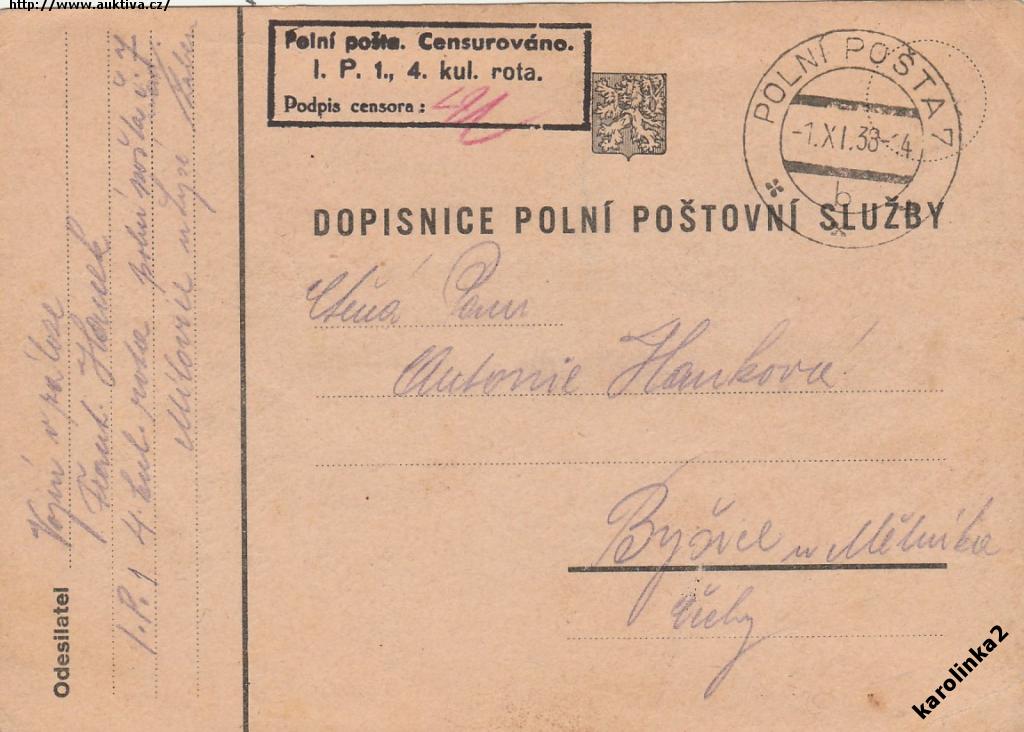 http://www.auktiva.cz/
Polní pošta. Censurováno.
I. P. 1., 4. kul. rota.
Podpis censora:
POLNÍ POŠTA 7
-1.XI.38-14
b
DOPISNICE POLNÍ POŠTOVNÍ SLUŽBY
Ctěná Paní
Antonie Hanková
Byšice u Mělníka
Čechy
Odesilatel
Vojín v záloze
Frant. Hanek
I.P.1 4 kul. rota polní pošta č 7
Milovice n Lys
karolinka2